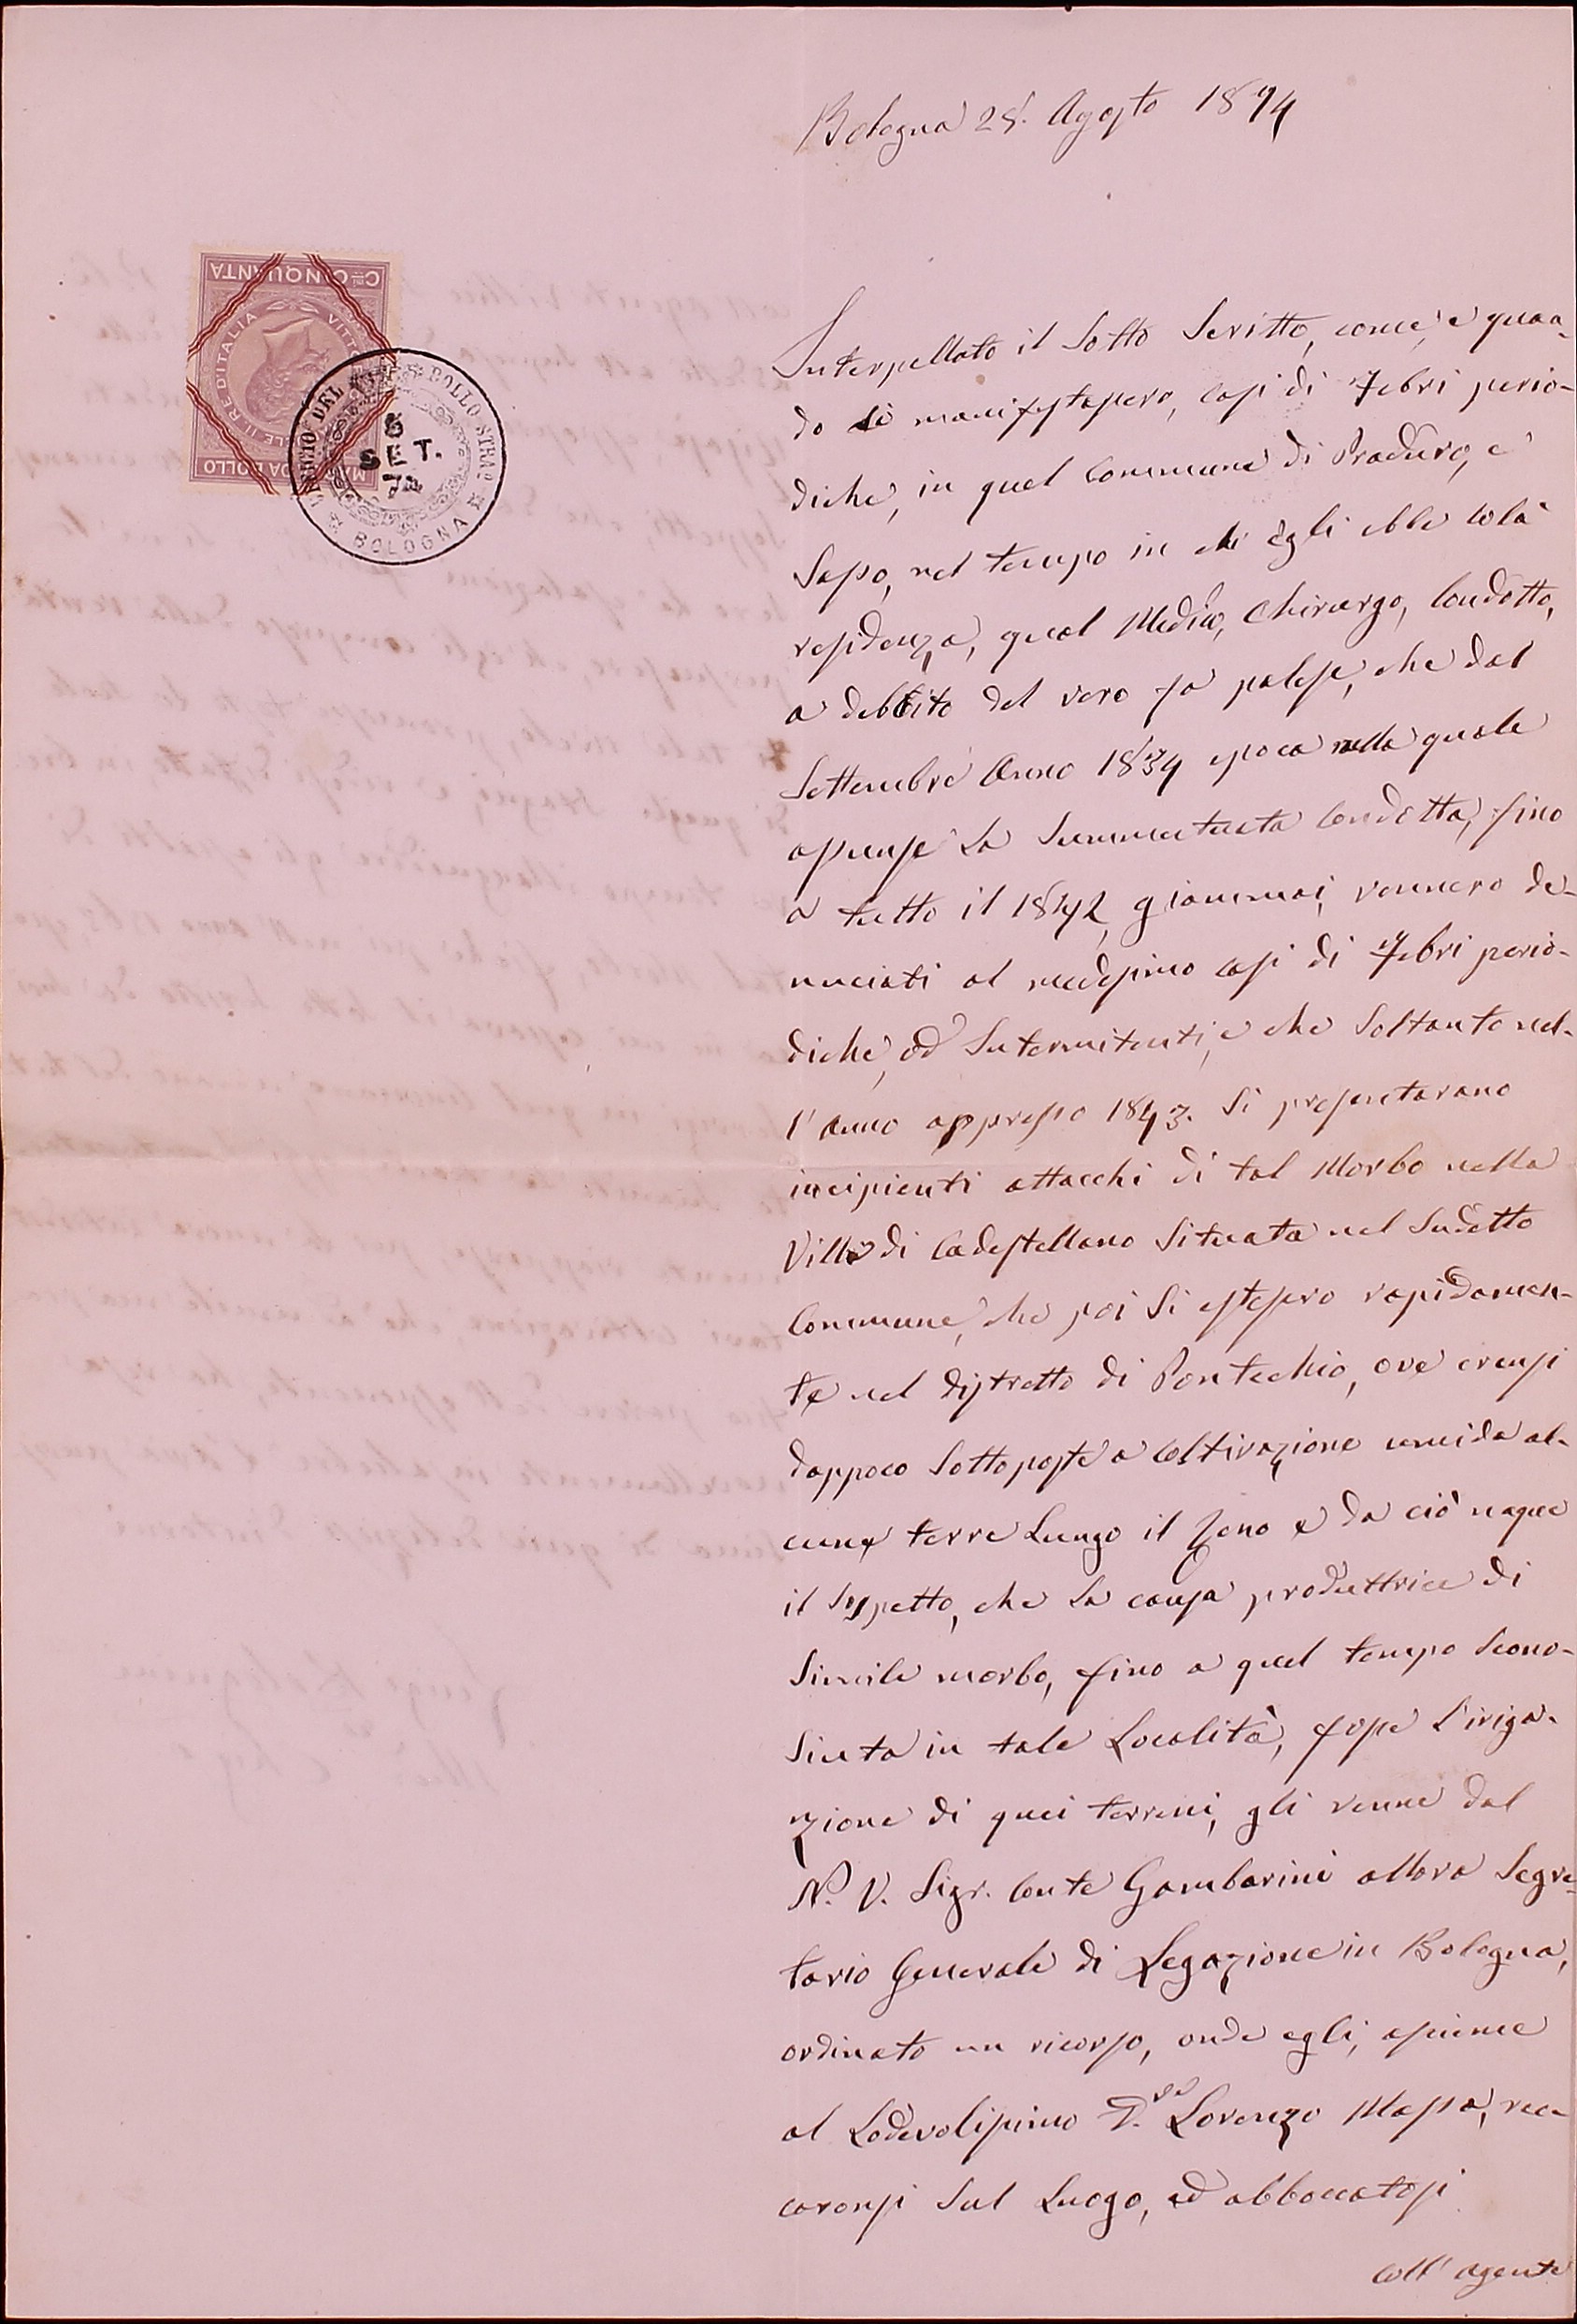 Bologna 28. Agosto 1874
Cmi CINQUANTA
VITTO LE II RE D'ITALIA
MA DA BOLLO
UFFICIO DEL BOLLO STRAO
BOLOGNA
5
SET.
74
Interpellato il Sotto Scritto, come, e quan-
do si manifestassero, casi di Febri perio-
diche, in quel Commune di Praduro, e
Sasso, nel tempo in chi Egli ebbe colà
residenza, qual Medico, Chirurgo, Condotto,
a debbito del vero fa palese, che dal
Settembre Anno 1834 epoca nella quale
assunse La Summentuata Condotta, fino
a tutto il 1842, giammai, vennero de-
nuciati al medesimo casi di Febri perio-
diche, od Intermitenti, e che Soltanto nel-
l'anno appresso 1843. Si presentarano
incipienti attacchi di tal Morbo nella
Villa di Cadestellano Situata nel Sudetto
Commune, che poi Si estesero rapidamen-
te nel distretto di Pontechio, ove eransi
dappoco Sottoposte a Coltivazione umida al-
cune terre Lungo il Reno e da ciò naque
il Sospetto, che La causa produttrice di
Simile morbo, fino a quel tempo Scono-
Siuta in tale Località, fosse L'iriga-
zione di quei terreni, gli venne dal
N. V. Sigr. Conte Gambarini allora Segre-
tario Generale di Legazione in Bologna,
ordinato un ricorso, onde egli, assieme
al Lodevolissimo D.re Lorenzo Massa, rec-
caronsi Sul Luogo, ed abboccatosi
coll' agente